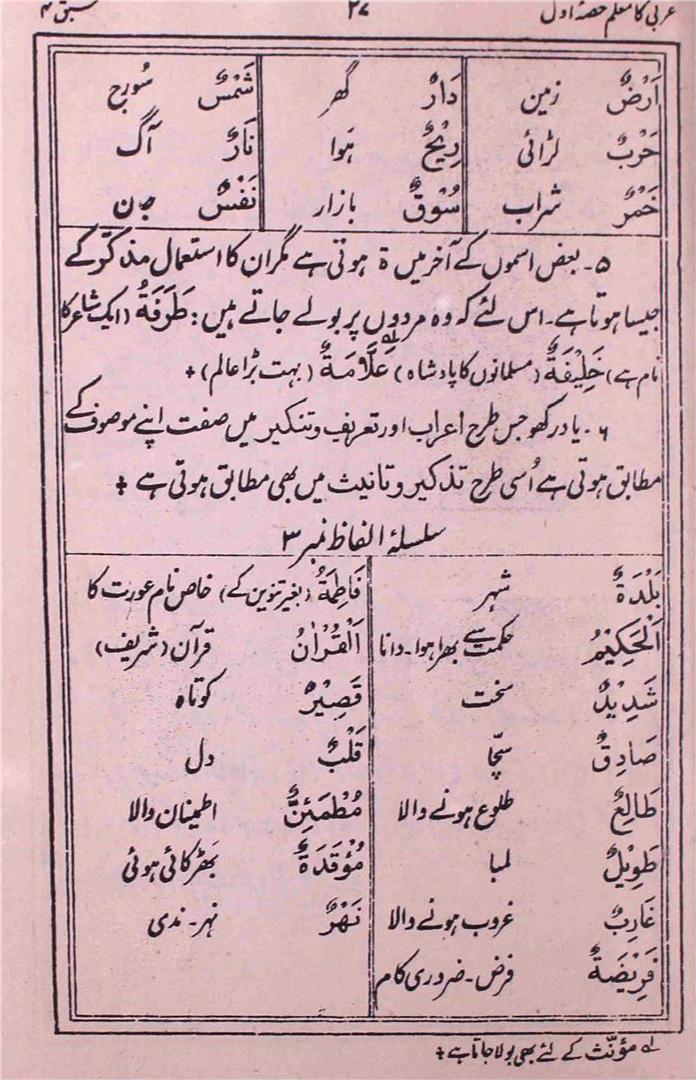 عربی کا معلم حصۂ اول ۲۷ سبق ۴
اَرْضٌ زمین دَارٌ گھر شَمْسٌ سُورج
حَرْبٌ لڑائی رِیْحٌ ہَوا نَارٌ آگ
خَمْرٌ شراب سُوْقٌ بازار نَفْسٌ جان
۵۔ بعض اسموں کے آخر میں ة ہوتی ہے مگر ان کا استعمال مذکر کے
جیسا ہوتا ہے۔ اس لئے کہ وہ مردوں پر بولے جاتے ہیں: طَرَفَةُ (ایک شاعر کا
نام ہے) خَلِیْفَةٌ (مسلمانوں کا پادشاہ) عَلَّامَةٌ لہ (بہت بڑا عالم) +
۶۔ یاد رکھو جس طرح اعراب اور تعریف و تنکیر میں صفت اپنے موصوف کے
مطابق ہوتی ہے اُسی طرح تذکیر و تانیث میں بھی مطابق ہوتی ہے +
سلسلۂ الفاظ نمبر ۳
بَلْدَةٌ شہر فَاطِمَةُ (بغیر تنوین کے) خاص نام عورت کا
اَلْحَکِیْمُ حکمت سے بھرا ہوا۔ دانا اَلْقُرْاٰنُ قرآن (شریف)
شَدِیْدٌ سخت قَصِیْرٌ کوتاہ
صَادِقٌ سچّا قَلْبٌ دل
طَالِعٌ طلوع ہونے والا مُطْمَئِنٌّ اطمینان والا
طَوِیْلٌ لمبا مُؤْقَدَةٌ بھڑکائی ہوئی
غَارِبٌ غروب ہونے والا نَهْرٌ نہر۔ ندی
فَرِیْضَةٌ فرض۔ ضروری کام
لہ مؤنّث کے لئے بھی بولا جاتا ہے +